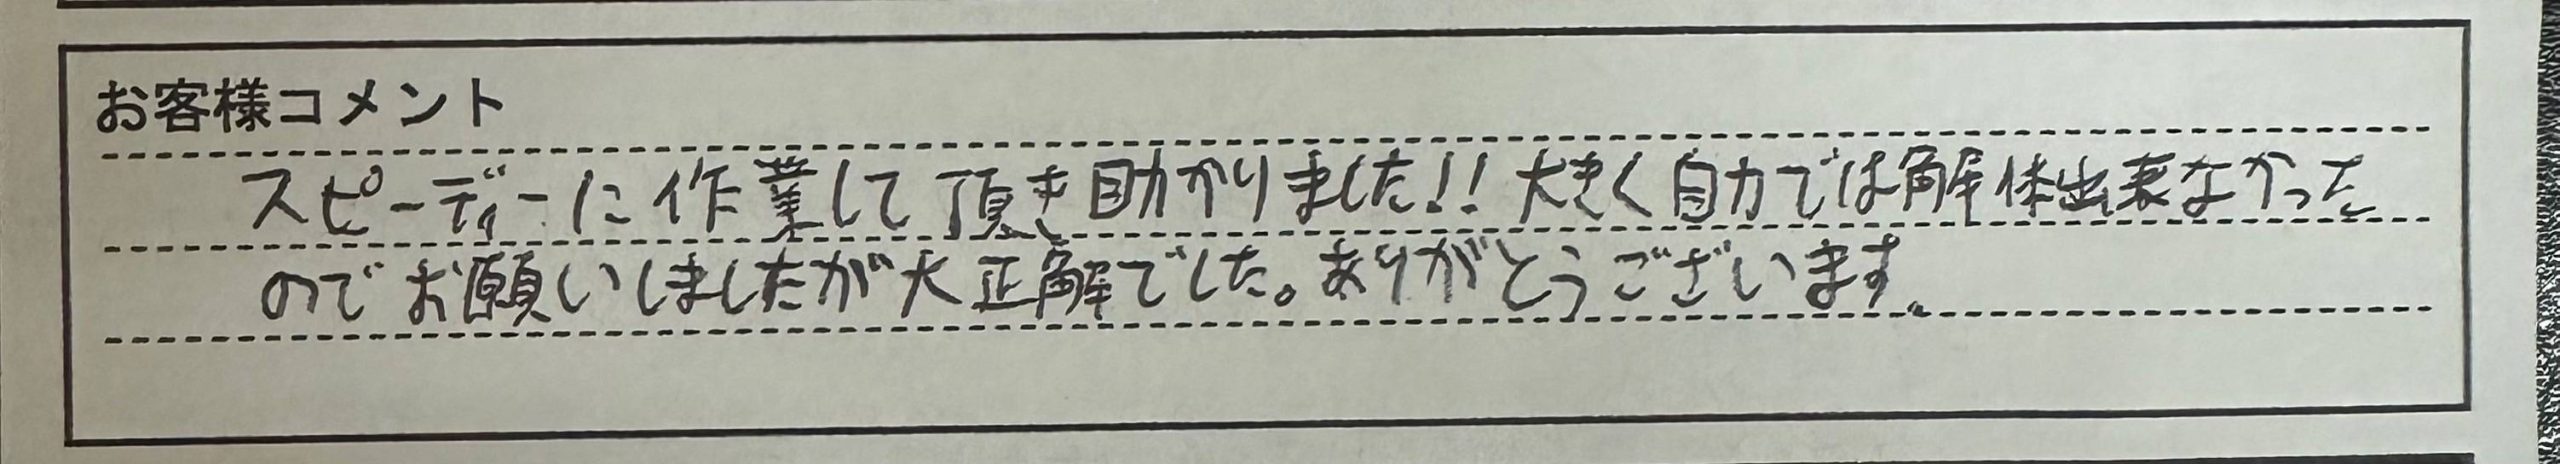 お客様コメント
スピーディーに作業して頂き助かりました!! 大きく自力では解体出来なかった
のでお願いしましたが大正解でした。ありがとうございます。